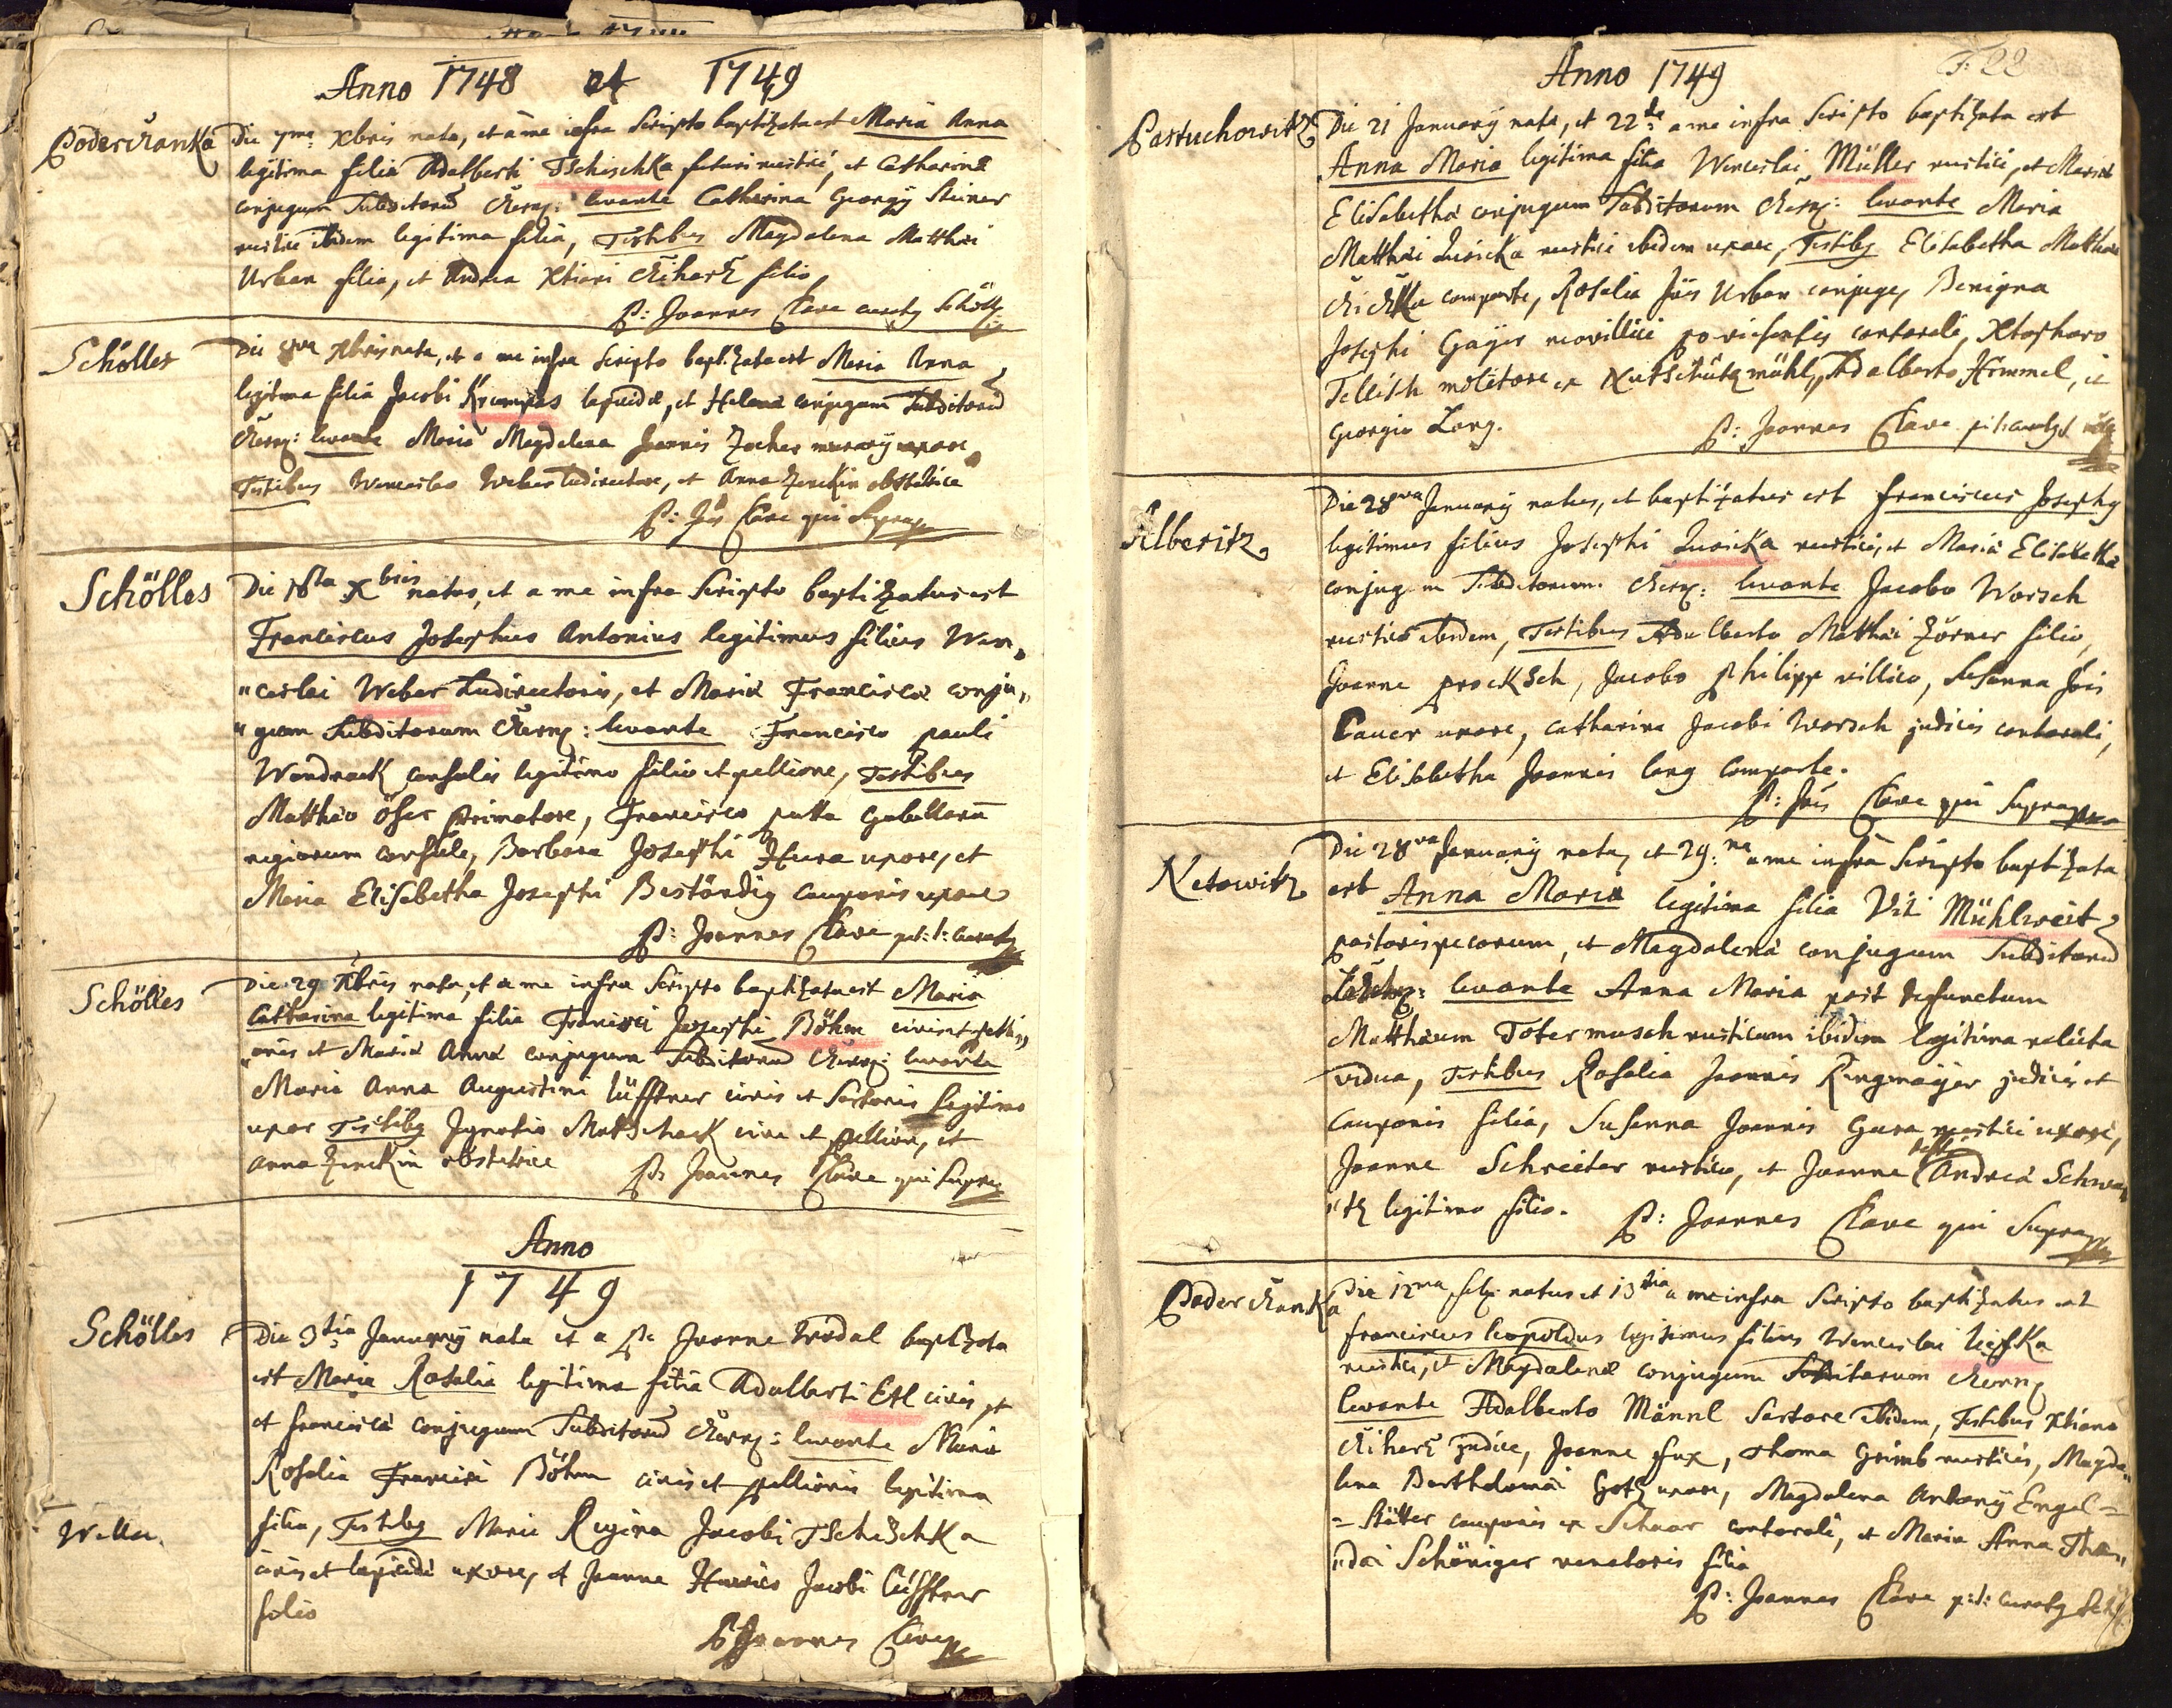 Anno 1748 et 1749
Poderszanka
Die 7ma Xbris nata, et a me infra Scripto baptizata est Maria Anna
legitima filia Adalberti Tschischka rustici, et Catharina
conjugum Subditorum levante Catharina Georgÿ Steiner
ibidem legitima filia, Testibus Magdalena Matthæi
Urban filia, et Andrea filio
P: Joannes Clave
Schölles
Die Xbris nata, et a me infra Scripto baptizata est Maria Anna
legitima filia Jacobi Krumpes lapicidæ, et Helena conjugum Subditorum
levante Maria Magdalena Joannis Zocher uxore
Testibus Wenceslao Weber Ludirectore, et Anna Zenckin obstetrice
P: Jōis Clave qui Supra
Schölles
Die Xbris natus, et a me infra Scripto baptizatus est
Franciscus Josephus Antonius legitimus filius Wen„
„ceslai Weber Ludirectoris, et Maria Francisca conju„
„gum Subditorum levante Francisco Pauli
Wondrack consulis legitimo filio et pellione, Testibus
Matthæo Öser Primatore, Francisco putta
regiorum consule, Barbara Josephi Hura uxore, et
Maria Elisabetha Josephi Beständig cauponis uxore
P: Joannes Clave p:t: curatg
Schölles
Die 29 Xbris nata, et a me infra Scripto baptizata est Maria
Catharina legitima filia Francisci Josephi Böhm civis et pelli„
„onis et Maria Anna conjugum Subditorum levante
Maria Anna Augustini Lüfftner civis et Sartoris legitima
uxor Testibg Ignatio Matschack cive et pellione, et
Anna Zenckin obstetrice P: Joannes Clave qui Supra
Anno
1749
Schölles
Die 3tia Januarÿ nata et a P: Joanne baptizata
est Maria Rosalia legitima filia Adalberti Etl civis, et
et Francisca conjugum Subditorum levante Maria
Rosalia Francisci Böhm civis et pellionis legitima
filia, Testibg Maria Regina Jacobi Tscheschka
civis et lapicidæ uxore, et Joanne Jacobi Lüfftner
filio
P Joannes Clave
Anno 1749
F: 22
Pastuchowitz
Die 21 Januarÿ nata, et 22da a me infra Scripto baptizata est
Anna Maria legitima filia Wenceslai Müller rustici, et Maria
Elisabetha conjugum Subditorum levante Maria
Matthæi Zusicka rustici ibidem uxore, Testibg Elisabetha Matthæi
comparte, Rosalia Jōis Urban conjuge, Benigna
Josephi Gayer contorali, Xtophoro
Tellisch molitore ex Kutschütz mühl, Adalberto Himmel, et
Georgio Lang. P: Joannes Clave p:t: curatg
Alberitz
Die 28va Januarÿ natus, et baptizatus est Franciscus Josephg
legitimus filius Josephi Zusicka rustici, et Maria Elisabetha
conjugum Subditorum levante Jacobo Worsch
rustico ibidem, Testibus Adalberto Matthæi Zörner filio,
Joanne Procksch, Jacobo Philipp villico, Susanna Jōis
Cauer uxore, Catharina Jacobi Worsch judicis contorali,
et Elisabetha Joannis Lang comparte.
P: Jōis Clave qui Supra
Netowitz
Die 28va Januarÿ nata, et 29na a me infra Scripto baptizata
est Anna Maria legitima filia Viti Mühlweit
pastoris pecorum, et Magdalena conjugum Subditorum
levante Anna Maria post defunctum
Matthæum Totermusch rusticum ibidem legitima relicta
vidua, Testibus Rosalia Joannis Ringmaÿer judicis et
cauponis filia, Susanna Joannis Gura rustici uxore,
Joanne Schreiter rustico, et Joanne Andrea Schwar„
„tz legitimo filio. P: Joannes Clave qui Supra
Poderszanka
Die 12ma natus et 13tia a me infra Scripto baptizatus est
Franciscus Leopoldus legitimus filius Wenceslai
rustici, et Magdalena conjugum Subditorum
levante Adalberto Männl Sartore ibidem, Testibus Xtiano
judice, Joanne Fux, Thoma Grimb rusticis, Magda„
lena Bartholomæi Götz uxore, Magdalena Antonÿ Engel=
= cauponis ex Schaar contorali, et Maria Anna Tha„
„dæi Schöniger venatoris filia
P: Joannes Clave p:t: curatg